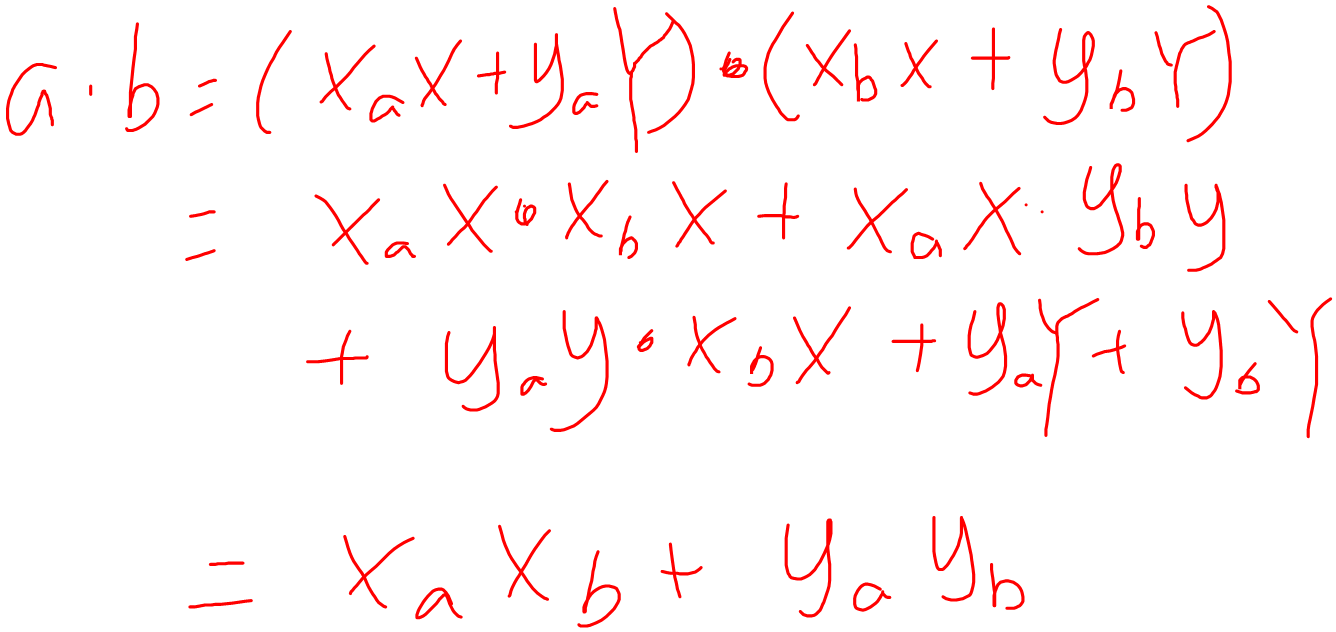 a · b = (x_a X + y_a Y) · (x_b X + y_b Y)
= x_a X · x_b X + x_a X · y_b y
+ y_a y · x_b X + y_a Y + y_b Y
= x_a x_b + y_a y_b